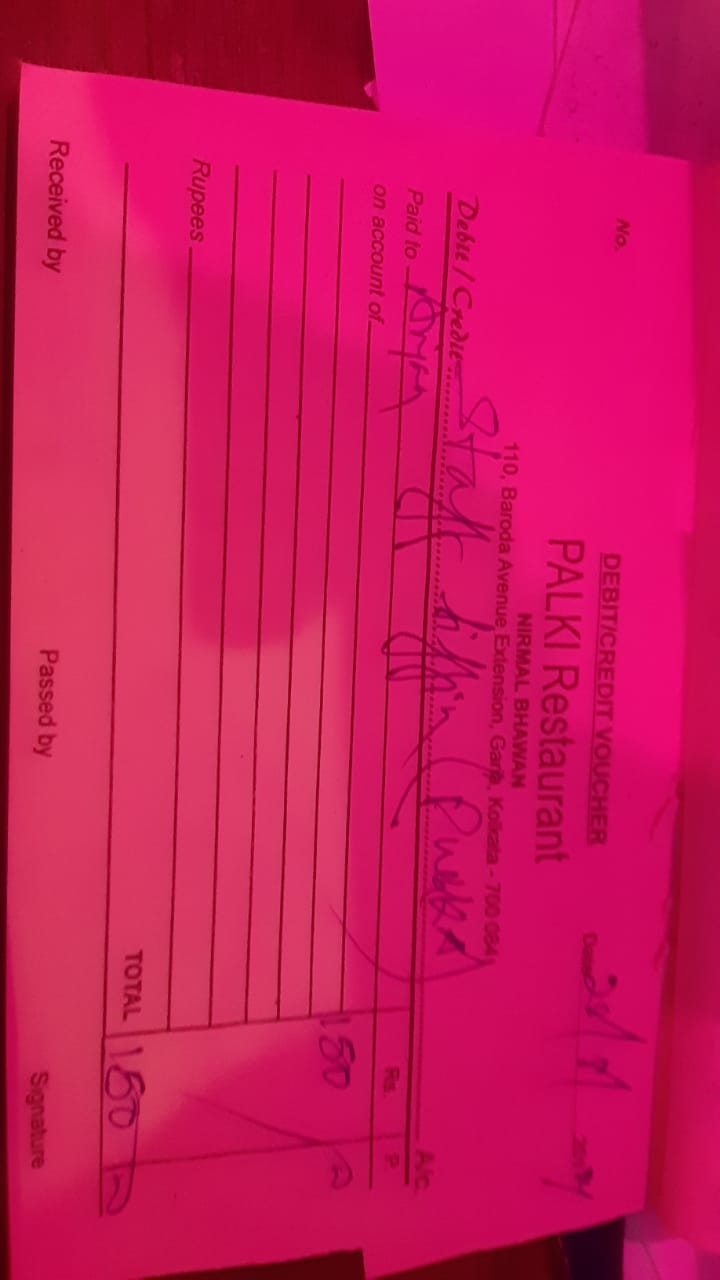 DEBIT/CREDIT VOUCHER
No.
PALKI Restaurant
NIRMAL BHAWAN
110, Baroda Avenue Extension, Garia, Kolkata - 700 084
Debit / Credit Staff tiffin ( A/c.
Paid to
Rs. P
on account of
150
Rupees
TOTAL 150
Received by Passed by Signature